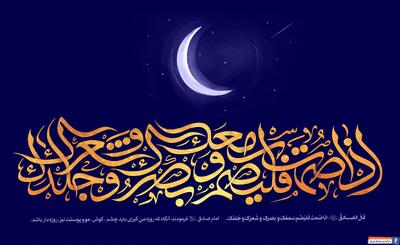 اذا صمت فلیصم سمعک و بصرک و شعرک و جلدک
قال الصادق (ع): اذا صُمتَ فَلیَصُم سَمعُکَ و بَصَرُکَ و شَعرُکَ و جَلدُکَ. امام صادق (ع) فرمودند: آنگاه که روزه می گیری باید چشم، گوش، مو و پوستت نیز روزه دار باشد.